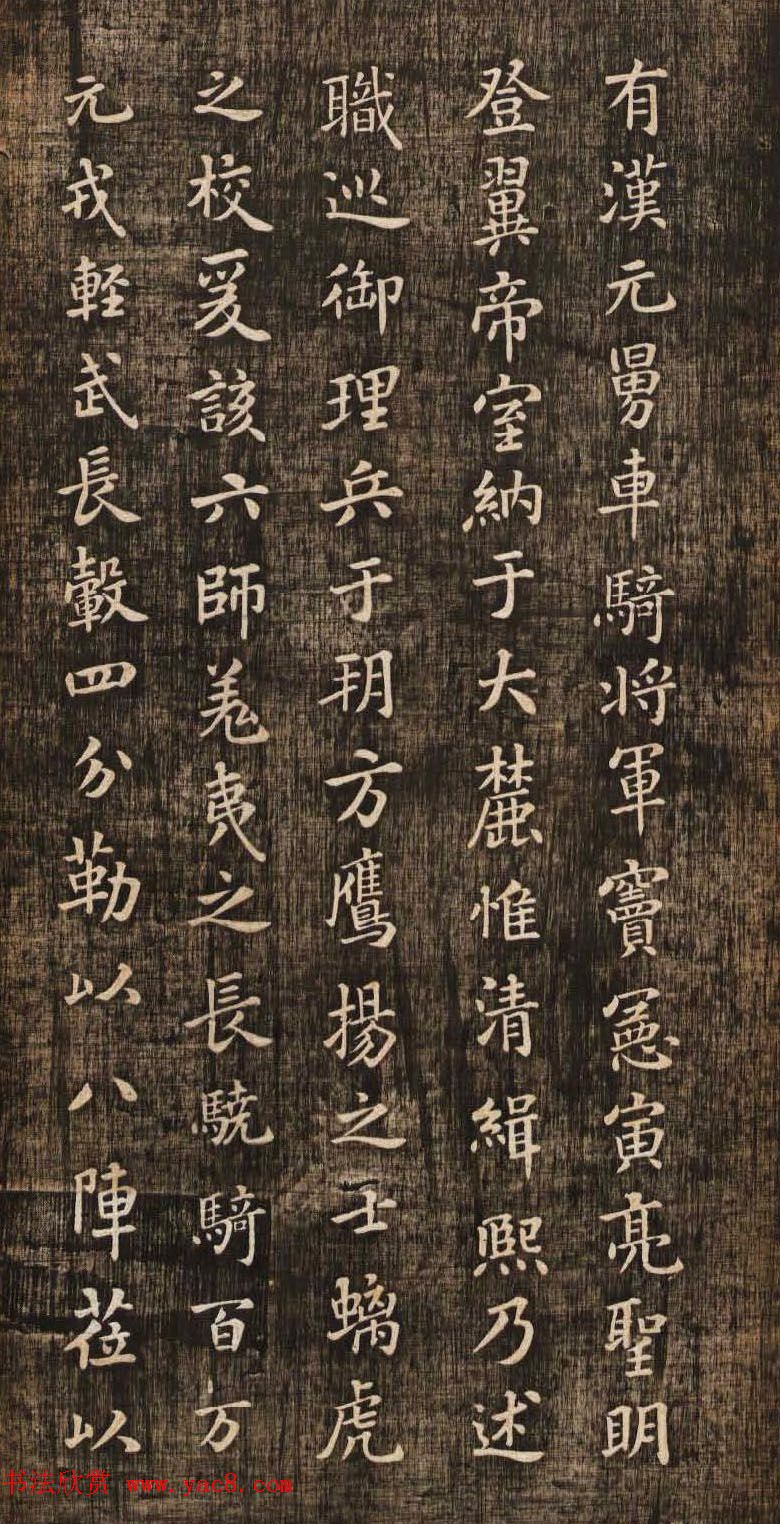 有漢元舅車騎将軍竇憲寅亮聖明
登翼帝室納于大麓惟清緝熙乃述
職巡御理兵于玥方鷹揚之士螭虎
之校爰該六師羌夷之長驍騎百万
元戎輕武長轂四分勒以八陣莅以
书法欣赏 www.yac8.com